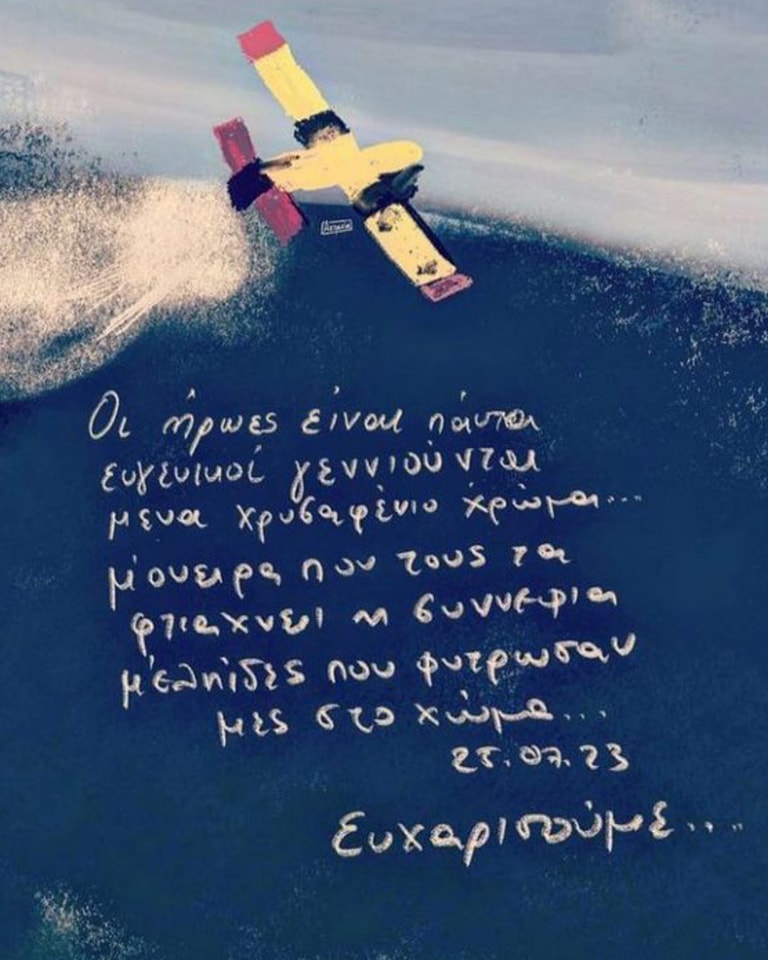 Οι ήρωες είναι πάντα
ευγενικοί γεννιούνται
μενα χρυσαφένιο χρώμα...
μ'ονειρα που τους τα
φτιαχνει η συννεφια
μ'ελπίδες που φυτρωσαν
μες στο χώμα...
25.07.23
Ευχαριστούμε....